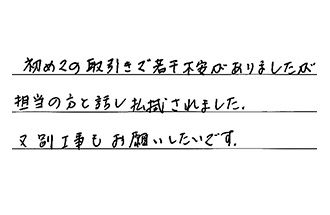 初めての取引きで若干不安がありましたが
担当の方と話し払拭されました。
又別工事もお願いしたいです。